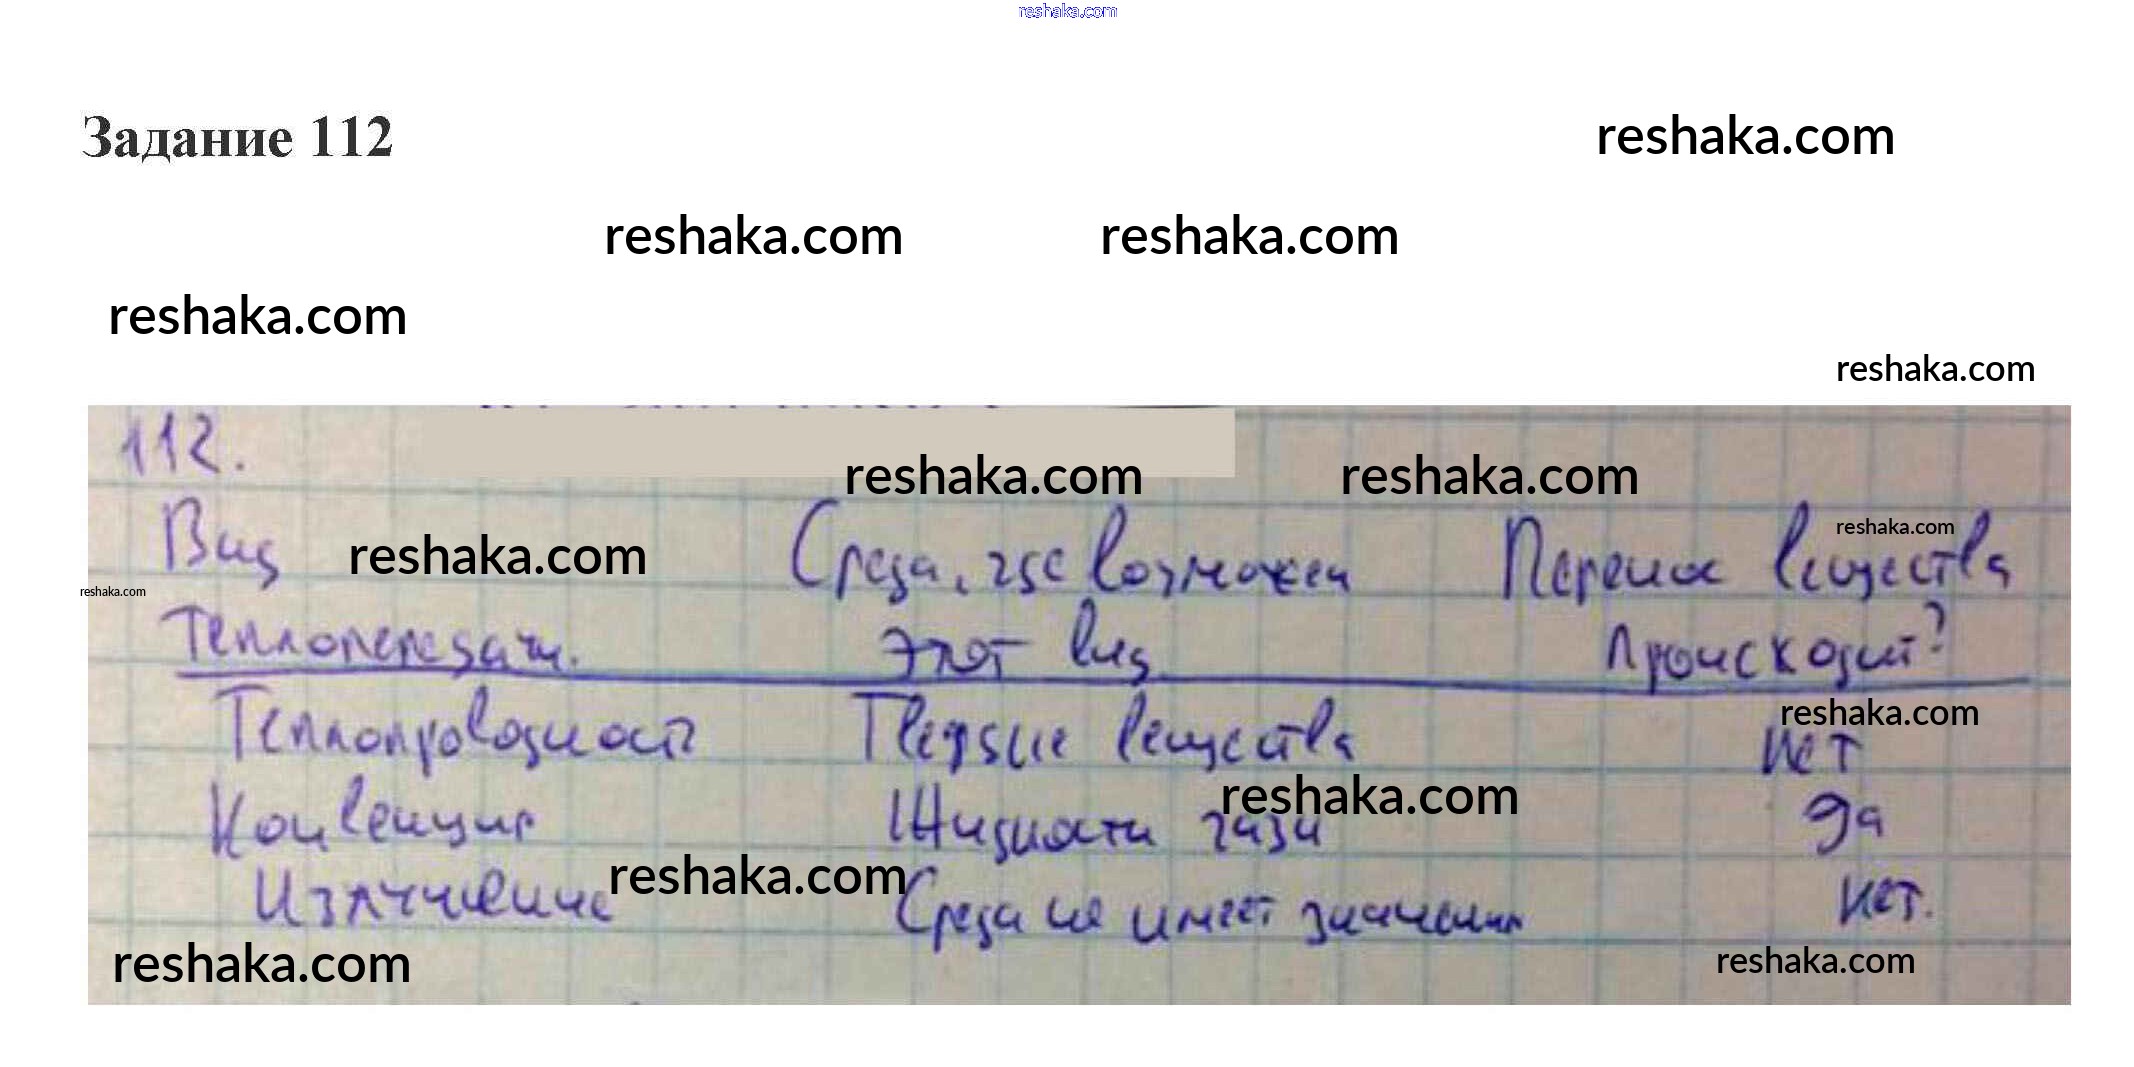 reshaka.com
Задание 112
reshaka.com
reshaka.com reshaka.com
reshaka.com
reshaka.com
112.
reshaka.com reshaka.com
Вид Среда, где возможен Перенос вещества
reshaka.com reshaka.com
reshaka.com
Теплопередачи. этот вид происходит?
Теплопроводность Твердые вещества нет
reshaka.com
reshaka.com
Конвекция Жидкости газы да
Излучение Среда не имеет значения нет.
reshaka.com
reshaka.com reshaka.com